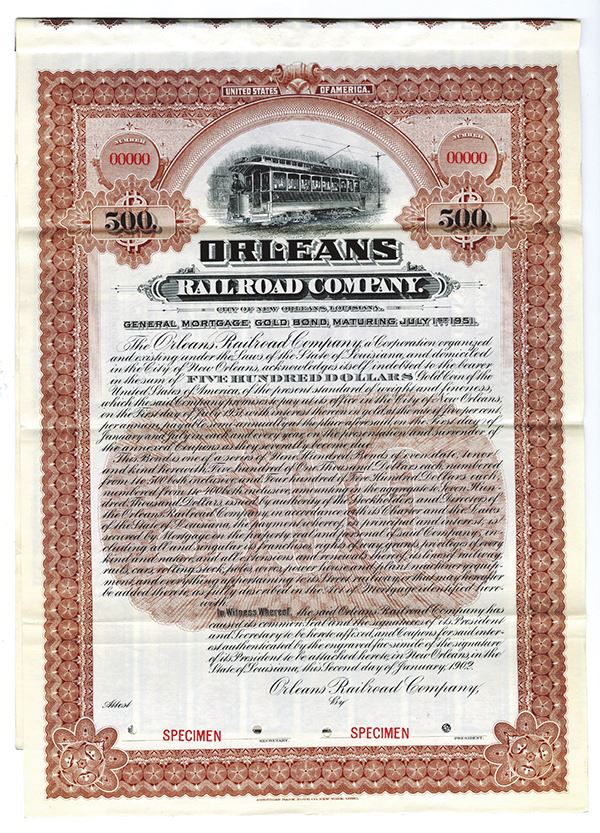 UNITED STATES OF AMERICA.
NUMBER
00000
NUMBER
00000
500.
500.
ORLEANS
RAILROAD COMPANY,
CITY OF NEW ORLEANS, LOUISIANA.
GENERAL MORTGAGE GOLD BOND, MATURING JULY 1ST 1951.
The Orleans Railroad Company, a Corporation organized
and existing under the Laws of the State of Louisiana, and domiciled
in the City of New Orleans, acknowledges itself indebted to the bearer
in the sum of FIVE HUNDRED DOLLARS Gold Coin of the
United States of America, of the present standard weight and fineness,
which the said Company promises to pay at its office in the City of New Orleans,
on the First day of July 1951, with interest thereon in gold at the rate of five per cent
per annum, payable semi-annually at the place aforesaid, on the first days of
January and July in each and every year, on the presentation and surrender of
the annexed Coupons as they severally become due.
This Bond is one of a series of Nine Hundred Bonds of even date, tenor
and kind herewith, Five hundred of One Thousand Dollars each, numbered
from 1 to 500 both inclusive, and Four hundred of Five Hundred Dollars each,
numbered from 1 to 400 both inclusive, amounting in the aggregate to Seven Hun-
dred Thousand Dollars, issued by authority of the Stockholders and Directors of
the Orleans Railroad Company, in accordance with its Charter and the Laws
of the State of Louisiana, the payment whereof in principal and interest, is
secured by Mortgage on the property real and personal of said Company, in-
cluding all and singular its franchises, rights of way, grants, privileges of every
kind and nature, and all extensions and renewals thereof, its lines of railway,
rails, cars, rolling stock, poles, wires, power house and plant, machinery, equip-
ment, and everything appertaining to its Street railway, or that may hereafter
be added thereto, as fully described in the Act of Mortgage identified here-
with.
In Witness Whereof, the said Orleans Railroad Company has
caused its common Seal and the signatures of its President
and Secretary to be hereto affixed, and Coupons for said inter-
est authenticated by the engraved fac-simile of the signature
of its President to be attached hereto, in New Orleans, in the
State of Louisiana, this Second day of January, 1902.
Orleans Railroad Company,
Attest
By
SPECIMEN
SPECIMEN
SECRETARY.
PRESIDENT.
AMERICAN BANK NOTE CO. NEW YORK.